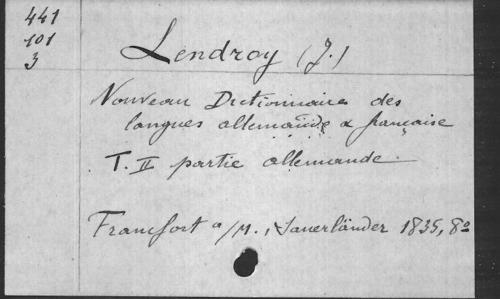 441
101
3
Lendroy (J.)
Nouveau Dictionnaire des
langues allemande & française
T. II partie allemande.
Francfort a/M., Sauerländer 1835, 8º